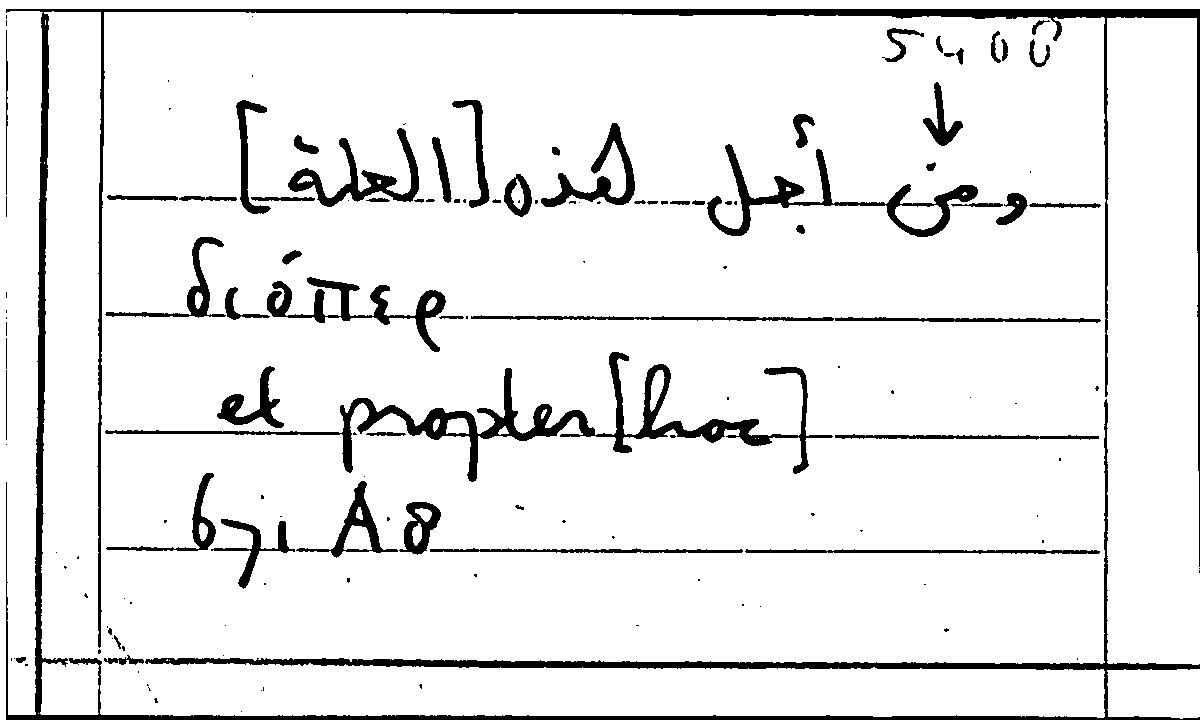 5408
↓
ومن أجل هذه [العلة]
διόπερ
et propter [hoc]
671 A8